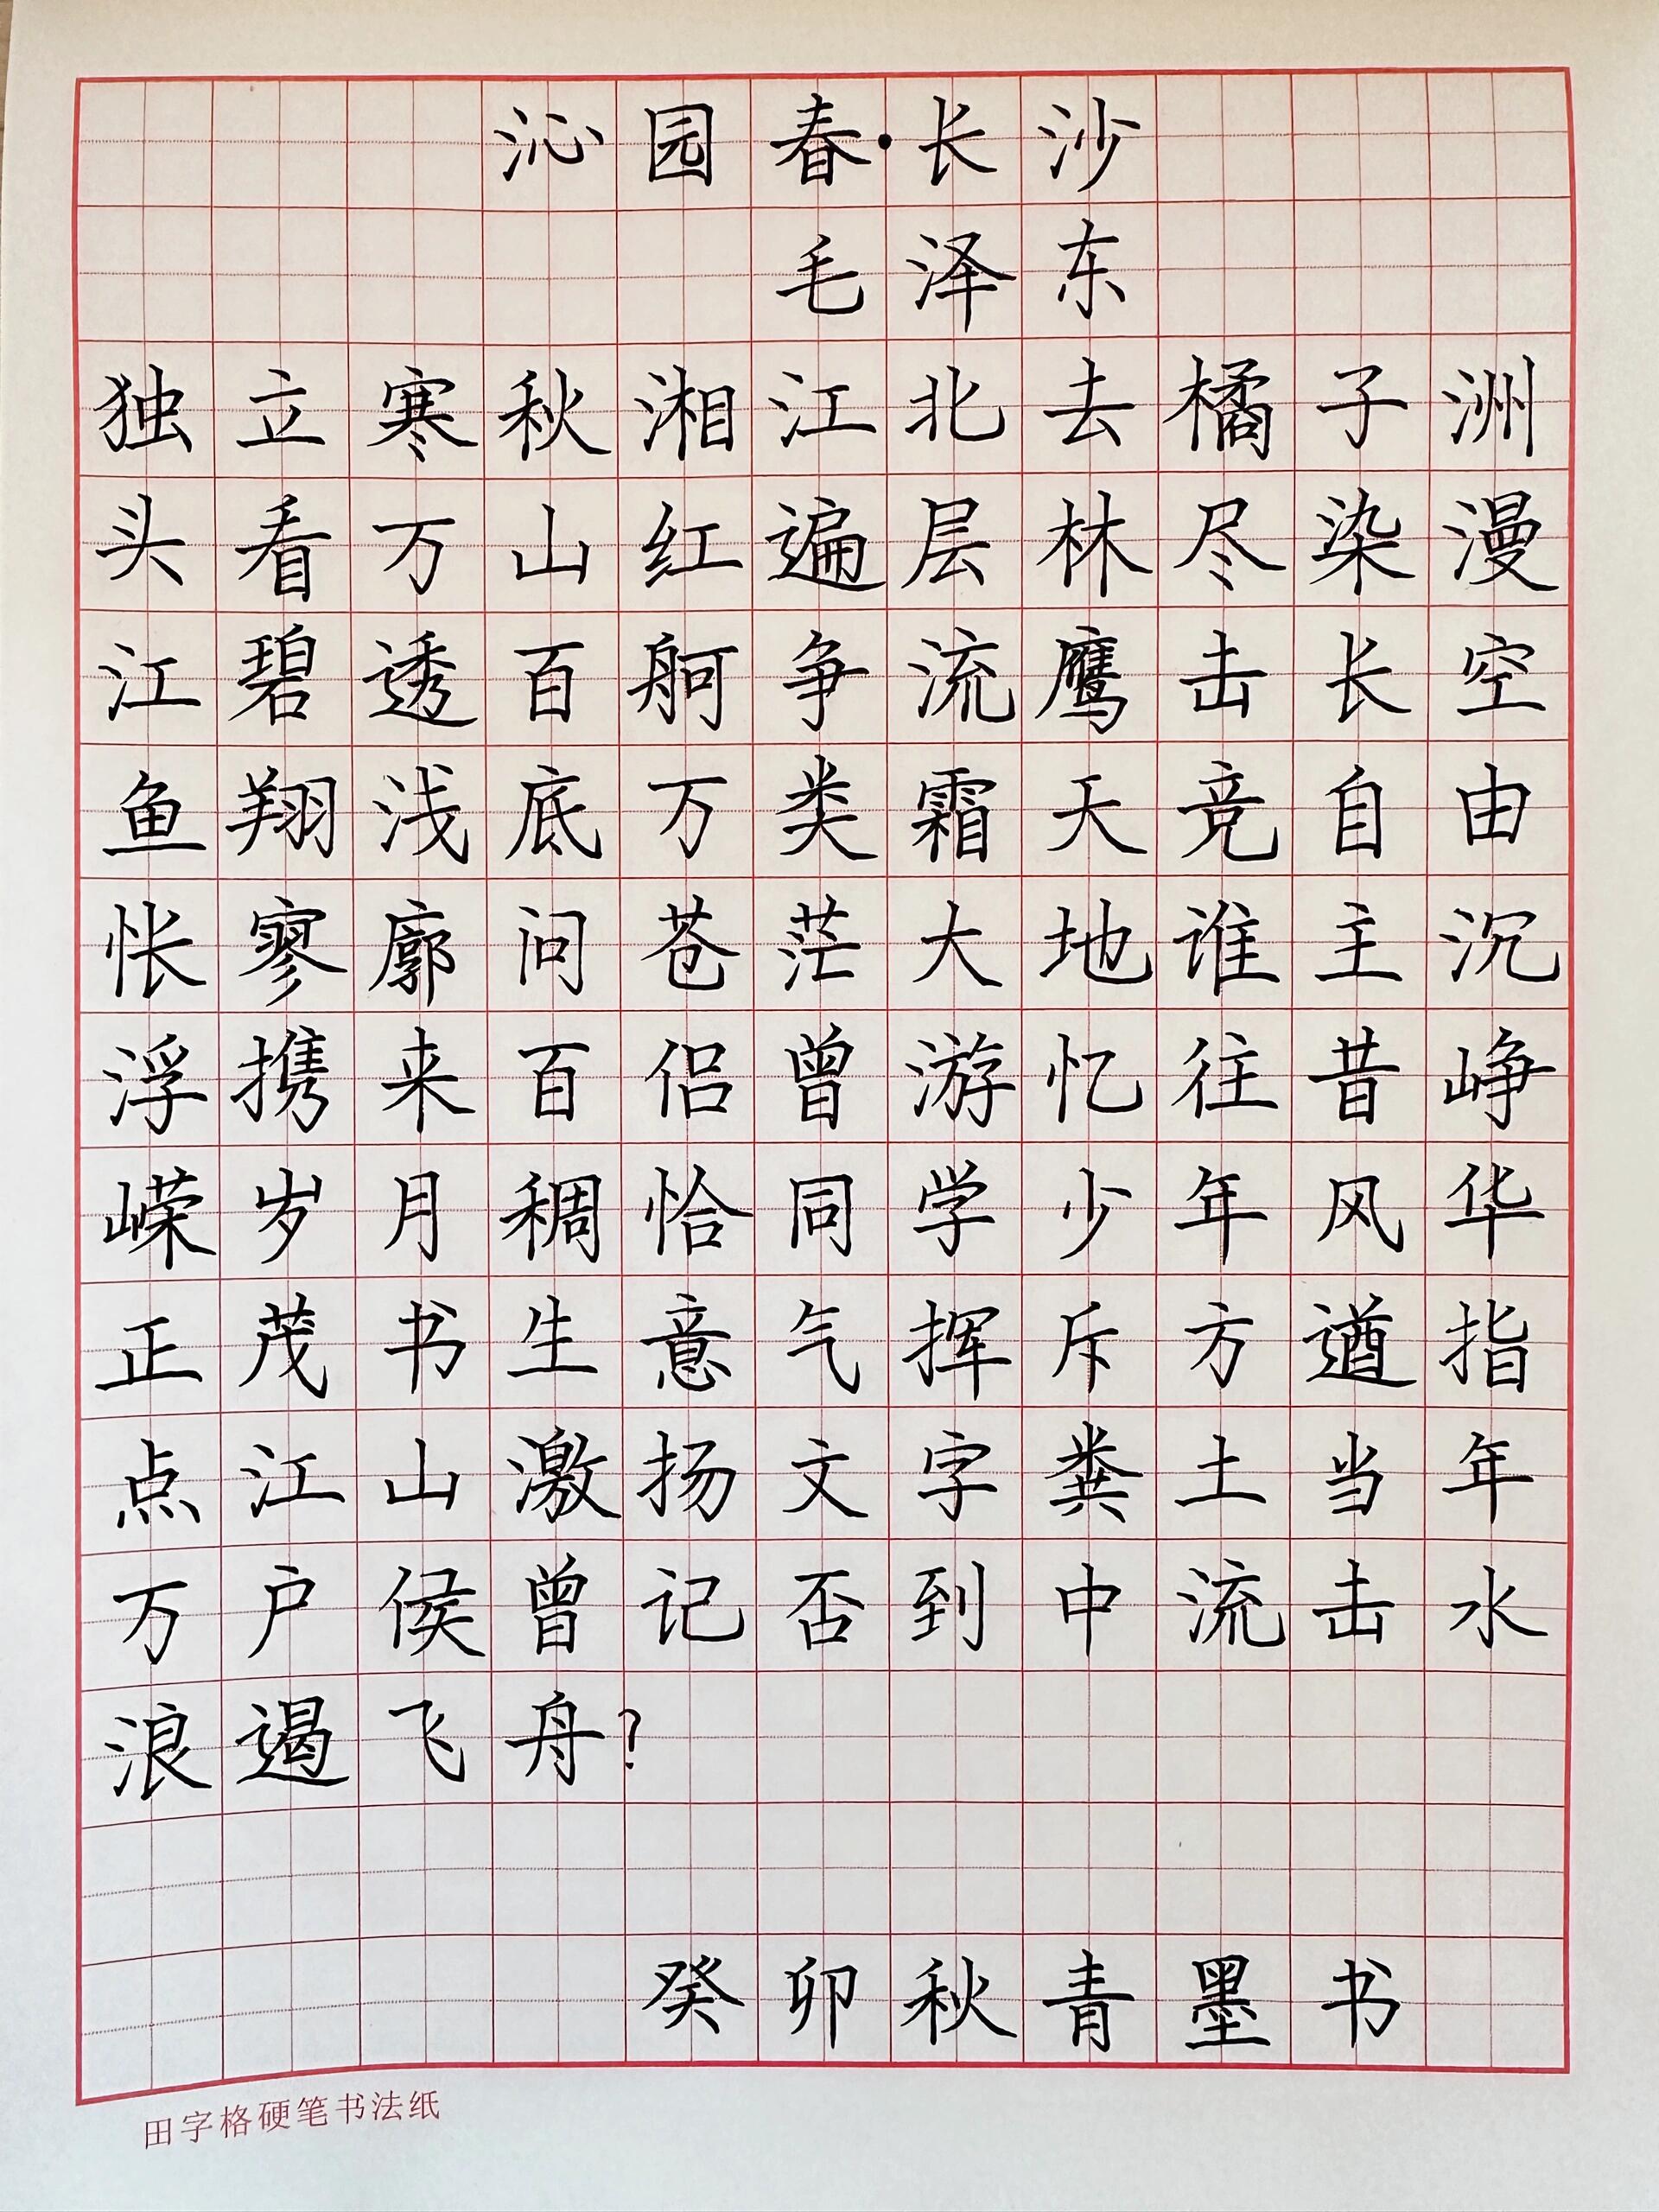 沁园春·长沙
毛泽东
独立寒秋湘江北去橘子洲
头看万山红遍层林尽染漫
江碧透百舸争流鹰击长空
鱼翔浅底万类霜天竞自由
怅寥廓问苍茫大地谁主沉
浮携来百侣曾游忆往昔峥
嵘岁月稠恰同学少年风华
正茂书生意气挥斥方遒指
点江山激扬文字粪土当年
万户侯曾记否到中流击水
浪遏飞舟?
癸卯秋青墨书
田字格硬笔书法纸